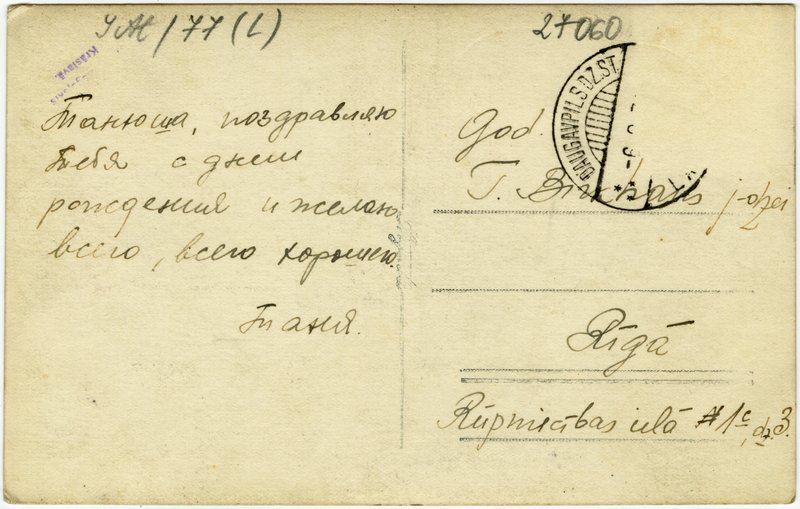 УАК/77 (L)
27060
Krāslavā.
DAUGAVPILS DZ.ST.
Танюша, поздравляю
Тебя с днем
рождения и желаю
всего, всего хорошего.
Таня.
God.
T. j-dzei
Rīgā
Rūpniecības ielā #1c, dz.3.